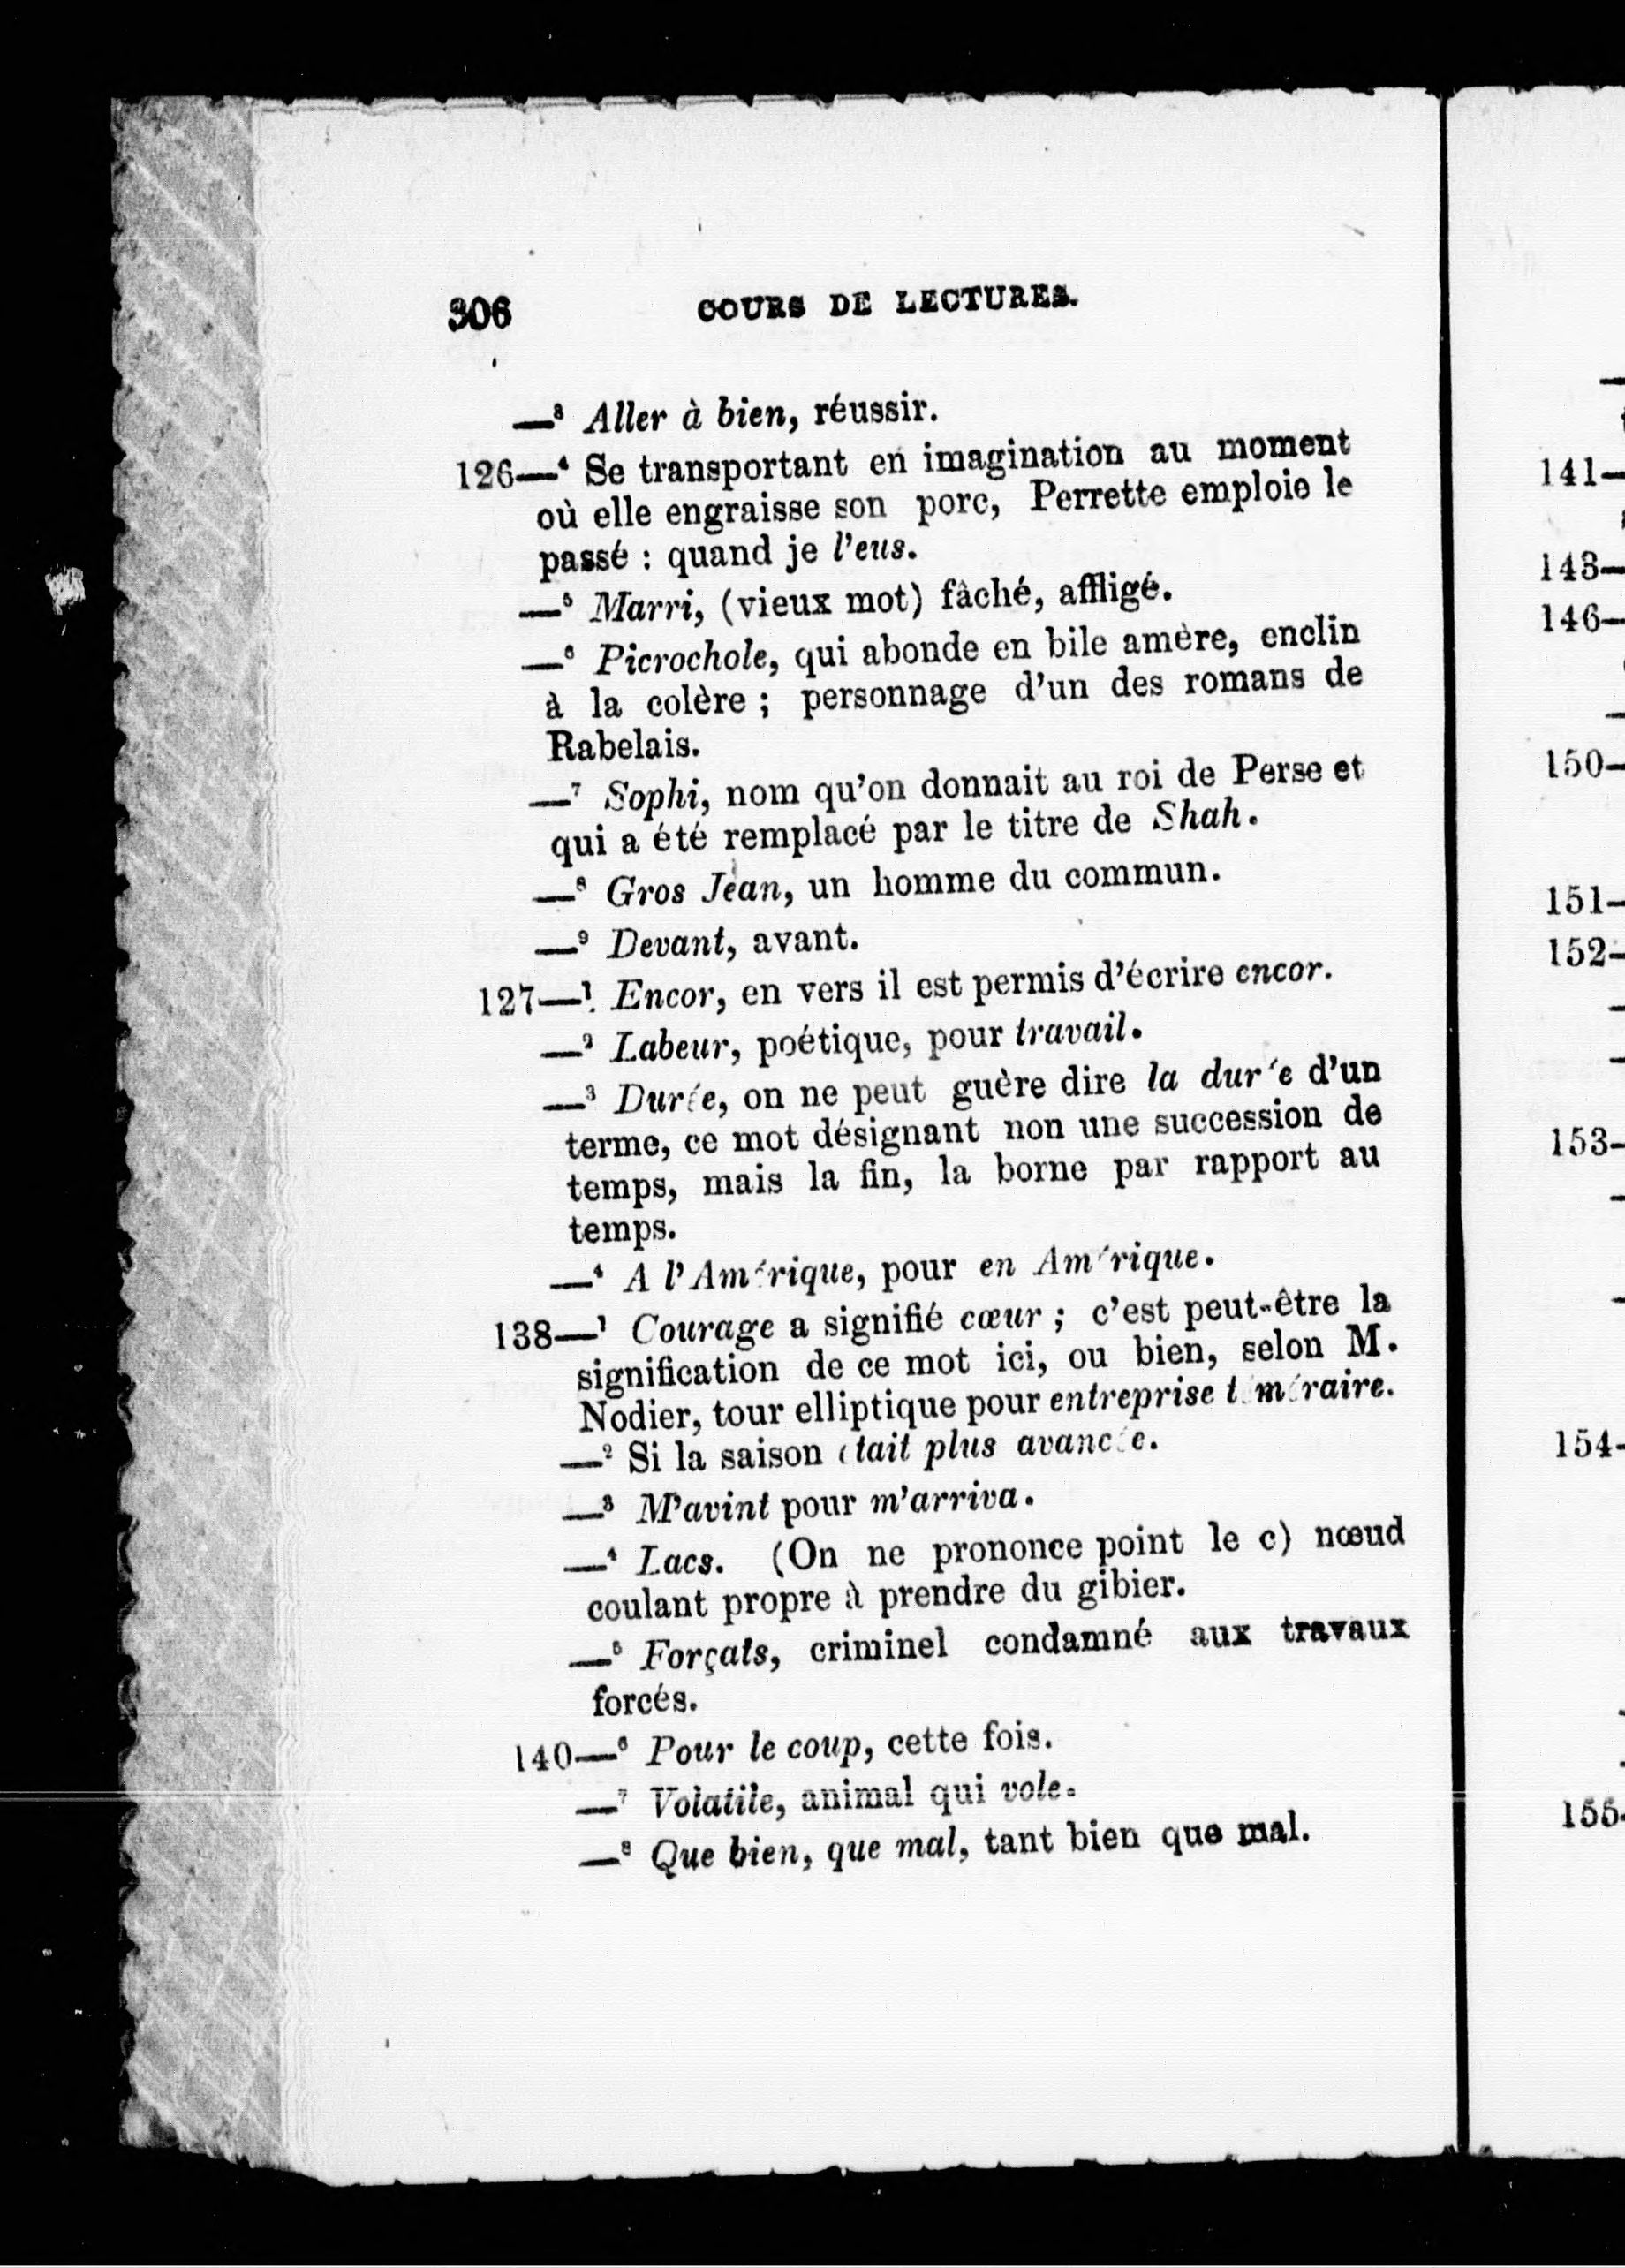 306 COURS DE LECTURES.
—³ Aller à bien, réussir.
126—⁴ Se transportant en imagination au moment
où elle engraisse son porc, Perrette emploie le
passé : quand je l'eus.
—⁵ Marri, (vieux mot) fâché, affligé.
—⁶ Picrochole, qui abonde en bile amère, enclin
à la colère ; personnage d'un des romans de
Rabelais.
—⁷ Sophi, nom qu'on donnait au roi de Perse et
qui a été remplacé par le titre de Shah.
—⁸ Gros Jean, un homme du commun.
—⁹ Devant, avant.
127—¹ Encor, en vers il est permis d'écrire encor.
—² Labeur, poétique, pour travail.
—³ Durée, on ne peut guère dire la durée d'un
terme, ce mot désignant non une succession de
temps, mais la fin, la borne par rapport au
temps.
—⁴ A l'Amérique, pour en Amérique.
138—¹ Courage a signifié cœur ; c'est peut-être la
signification de ce mot ici, ou bien, selon M.
Nodier, tour elliptique pour entreprise téméraire.
—² Si la saison était plus avancée.
—³ M'avint pour m'arriva.
—⁴ Lacs. (On ne prononce point le c) nœud
coulant propre à prendre du gibier.
—⁵ Forçats, criminel condamné aux travaux
forcés.
140—⁶ Pour le coup, cette fois.
—⁷ Volatile, animal qui vole.
—⁸ Que bien, que mal, tant bien que mal.
141—
143—
146—
150—
151—
152—
153—
154-
155-